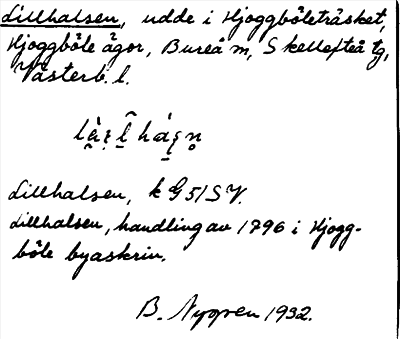 Lillhalsen, udde i Hjoggböleträsket,
Hjoggböle ägor, Bureå m, Skellefteå tg,
Västerb. l.
Lillhalsen, k G51SV.
Lillhalsen, handling av 1796 i Hjogg-
böle byaskrin.
B. Nygren 1932.